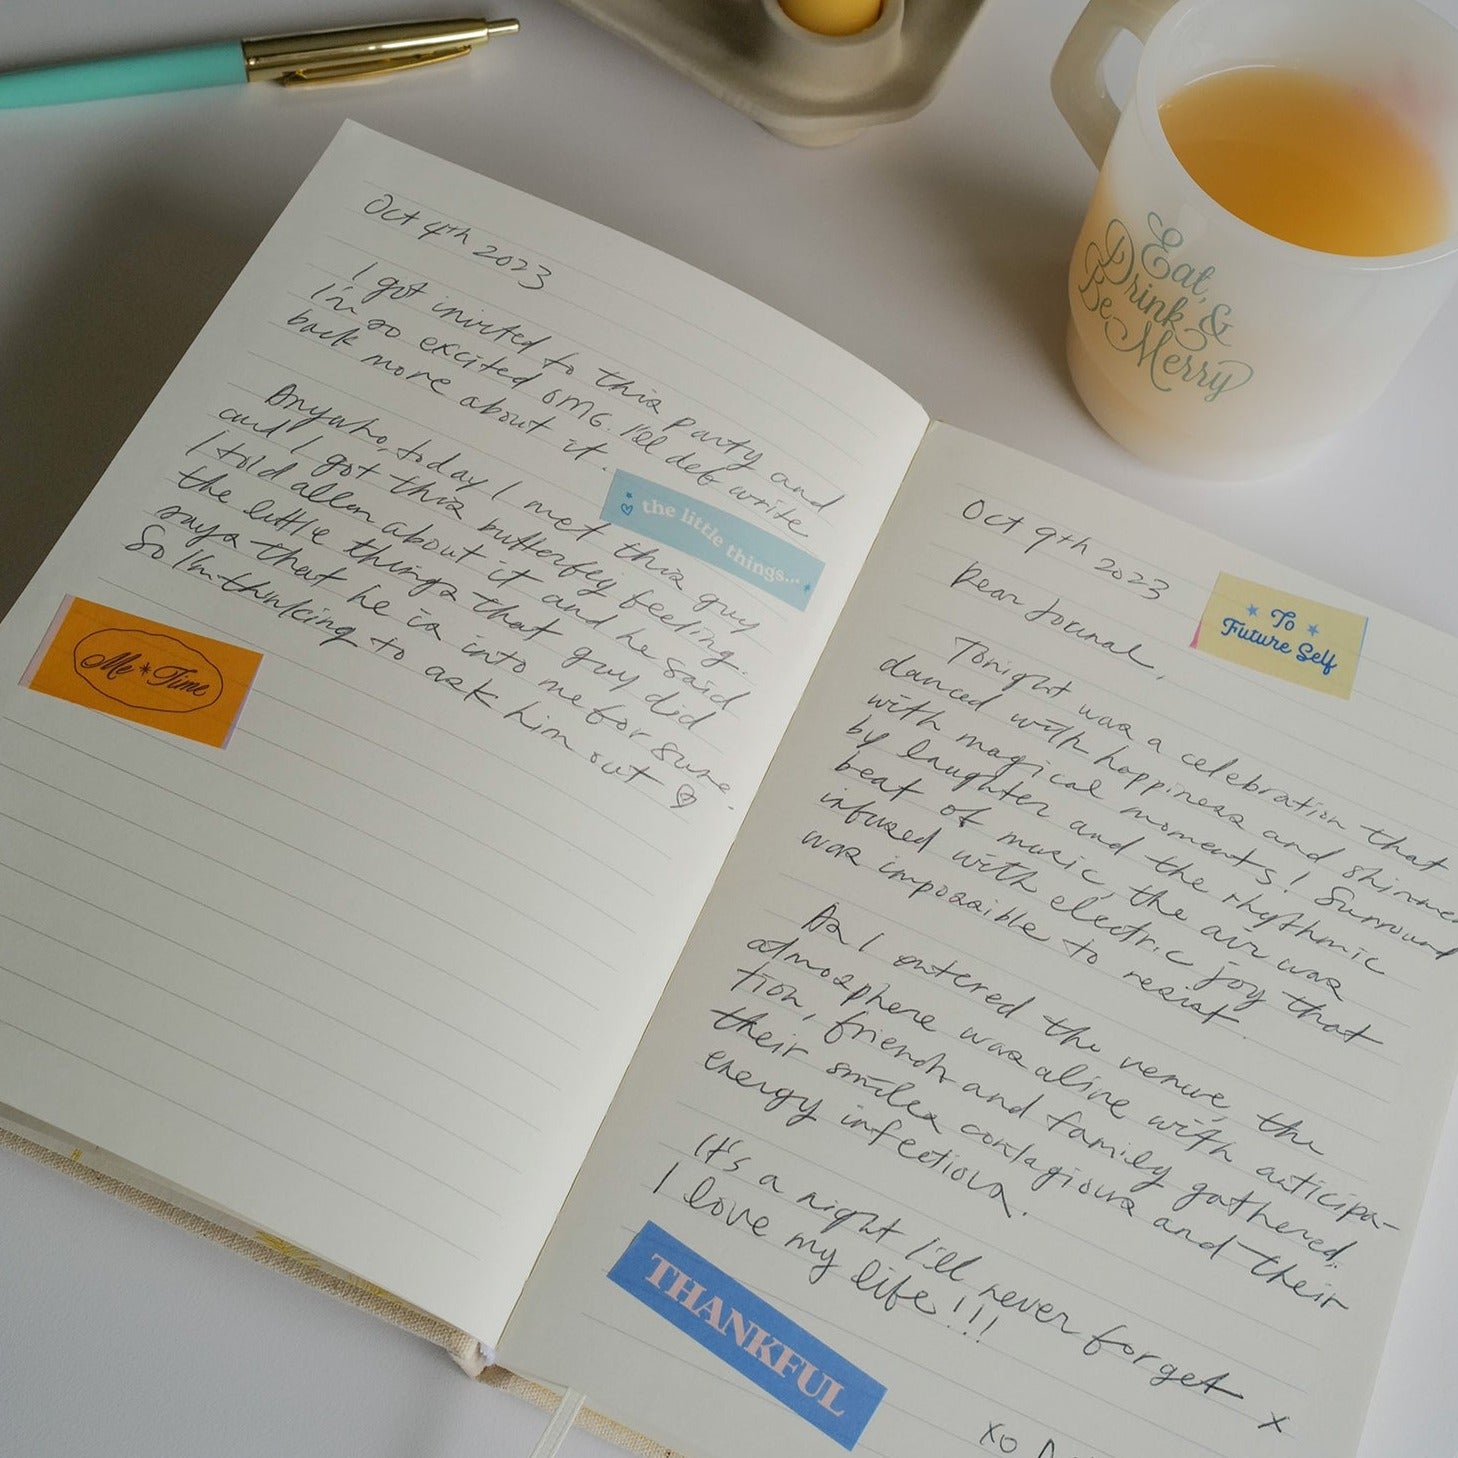 Oct 4th 2023
I got invited to this party and
I'm so excited OMG. I'll def write
back more about it.
the little things...
Anywho, today I met this guy
and I got this butterfly feeling.
I told allen about it and he said
the little things that guy did
says that he is into me for sure.
So I'm thinking to ask him out
Me * Time
Oct 9th 2023
To
Future Self
Dear Journal,
Tonight was a celebration that
danced with happiness and shimme
with magical moments! Surround
by laughter and the rhythmic
beat of music, the air was
infused with electric joy that
was impossible to resist.
As I entered the venue, the
atmosphere was alive with anticipa-
tion, friends and family gathered,
their smiles contagious and their
energy infectious.
It's a night I'll never forget
I love my life!!!
x
xo
THANKFUL
Eat,
Drink, &
Be Merry